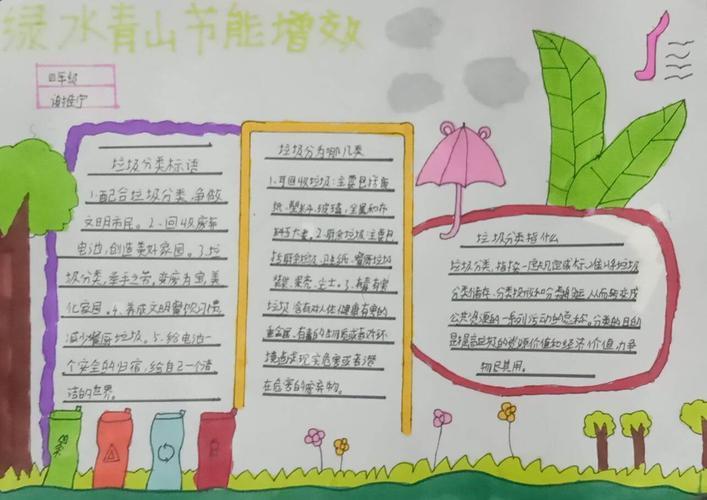 绿水青山节能增效
四年级
垃圾分类标语
1.配合垃圾分类,争做
文明市民。2.回收废新
电池,创造美好家园。3.垃
圾分类,举手之劳,变废为宝,美
化家园。4.养成文明餐饮习惯
减少餐厨垃圾。5.给电池一
个安全的归宿,给自己一个清
洁的世界。
垃圾分为哪几类
1.可回收垃圾:主要包括废
纸、塑料、玻璃、金属和布
料五大类。2.厨余垃圾:主要包
括
果壳、尘土。3.有毒有害
垃圾 含有对人体健康有害的
重金属、有毒的物质或者对环
境造成现实危害或者潜
在危害的废弃物。
垃圾分类指什么
垃圾分类,指按一定规定或标准将垃圾
分类储存、分类投放和分类搬运,从而转变成
公共资源的一系列活动的总称。分类的目的
是提高垃圾的资源价值和经济价值,力争
物尽其用。